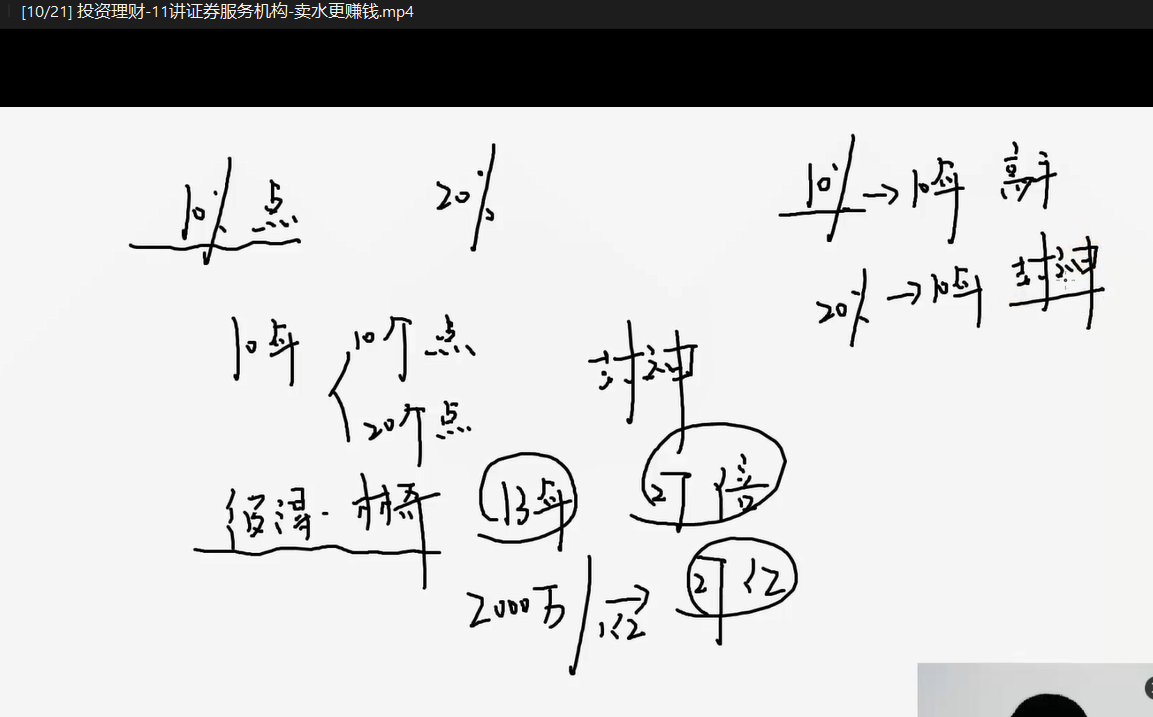 [10/21] 投资理财-11讲证券服务机构-卖水更赚钱.mp4
10% 点
20%
10% → 10年 高手
20% → 10年 封神
10年
10个点
20个点
封神
彼得·林奇
13年
27倍
2000万/1亿 → 27亿